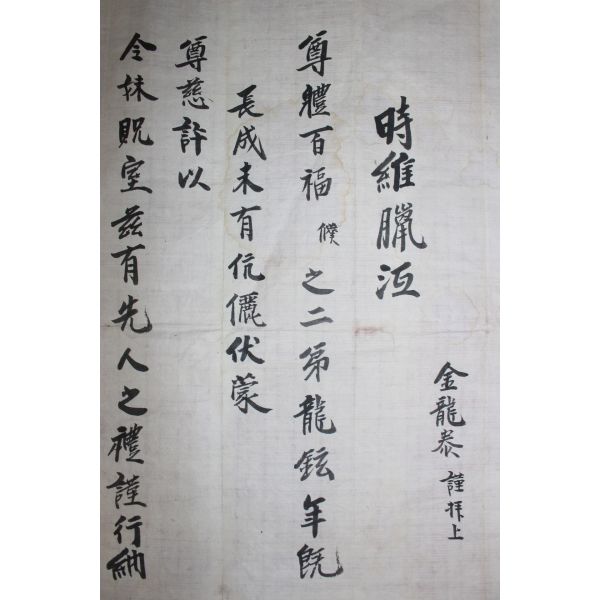 金龍泰 謹拜上
時維臘沍
尊體百福 僕之二弟龍鉉年旣
長成未有伉儷伏蒙
尊慈許以
令妹貺室玆有先人之禮謹行納